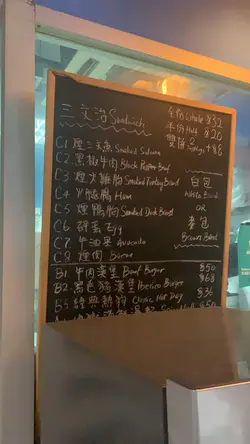 三文治 Sandwich
全份 Whole $32
半份 Half $20
雙拼 2 Toppings +$8
C1 煙三文魚 Smoked Salmon
C2 黑椒牛肉 Black Pepper Beef
C3 煙火雞胸 Smoked Turkey Breast
C4 火腿 Ham
C5 煙鴨胸 Smoked Duck Breast
C6 Egg
C7 牛油果 Avocado
C8 煙肉 Bacon
白包
White Bread
OR
麥包
Brown Bread
B1 牛肉漢堡 Beef Burger $50
B2 黑色豬漢堡 Iberico Burger $68
B3 經典熱狗 Classic Hot Dog $36